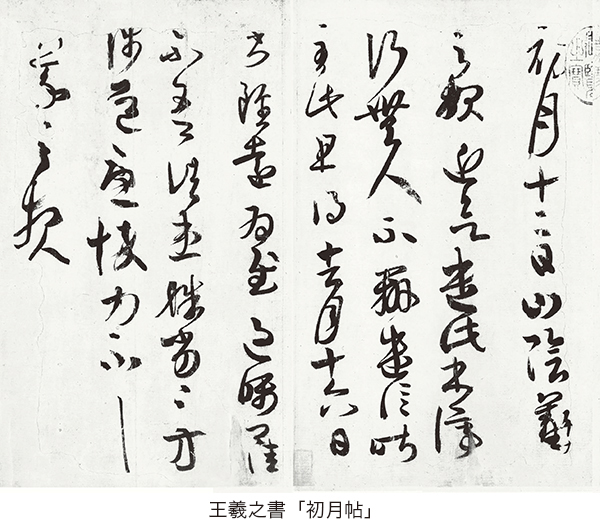 初月十二日山陰羲
之報近欲遣此書停
行無人不辦遣信昨
至此且得去月十六日
書雖遠為慰過囑卿佳
不吾諸患殊劣殊劣方
涉道憂悴力不具
羲之報
王羲之書「初月帖」